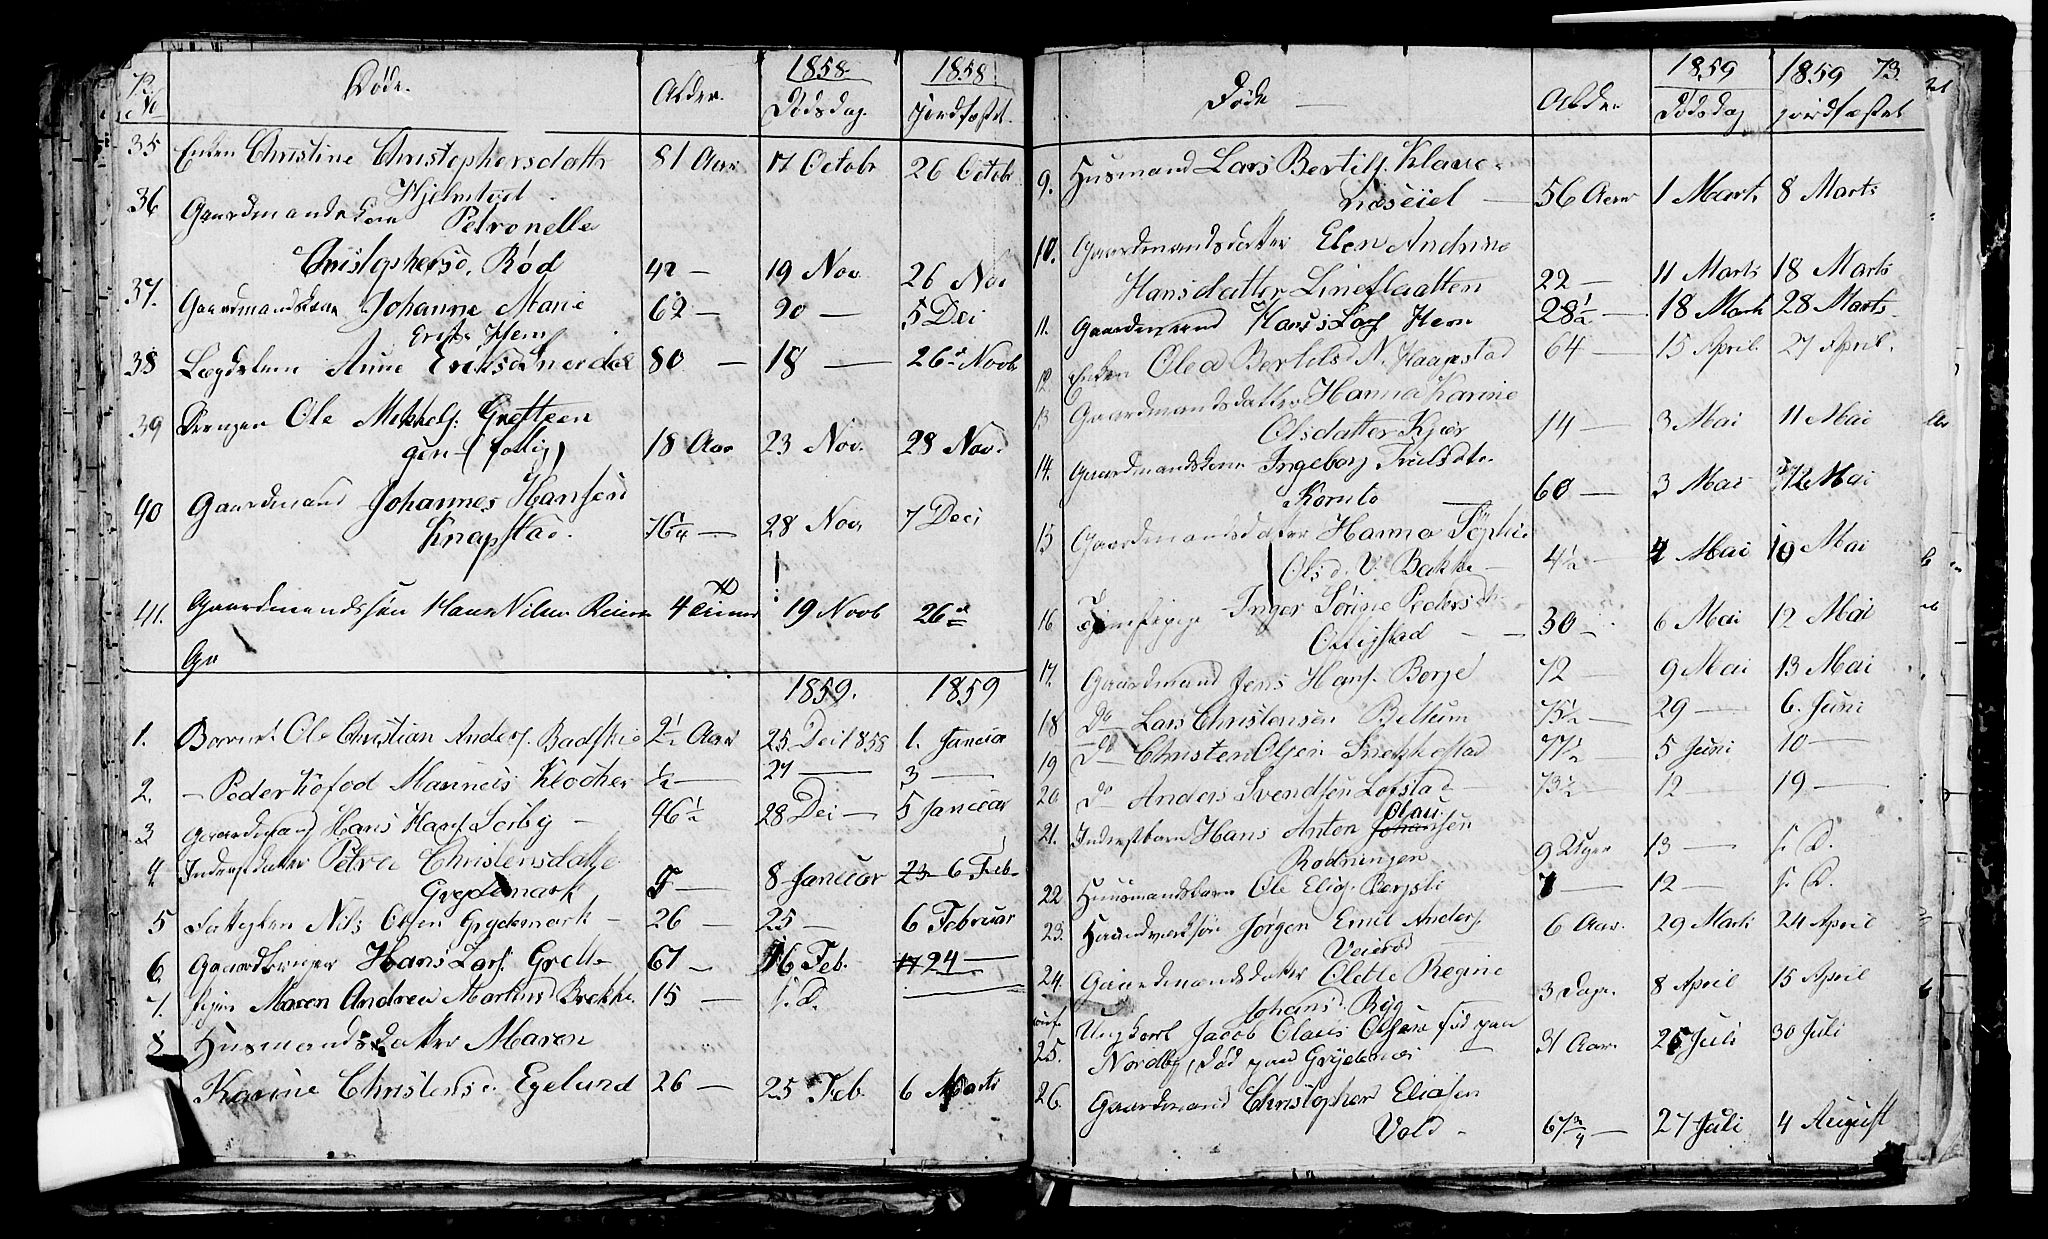 72. Døde. Alder. 1858 1858
No Dødsdag. Jordfæstet.
35 Enken Christine Christophersdattr 81 Aar 17 Octobr 26 Octobr
Hjelmtvet
36 Gaardmandskone Petronelle
Christophersd. Rød 42 — 19 Nov. 26 Nov
37. Gaardmandskone Johanne Marie 62 — 20 — 5 Dec
Eriks. Hem
38 Lægdslem Anne Eriksd Snerdal 80 — 18 — 26d Novb
39 Drengen Ole Mikkels. Grefteen
gen (fattig) 18 Aar 23 Nov. 28 Nov.
40 Gaardmand Johannes Hansen
Knapstad. 76 1/4 — 28 Nov. 7 Dec
41. Gaardmandssøn Hans Nilsen 4 Timer 19 Novb 26d
1859. 1859
1. Barnet Ole Christian Anders. 2 1/2 Aar 25. Dec 1858 1. Januar
2. — Peder Kofod Marinus Klocker 1/2 — 27 — 3 —
3 Gaardmand Hans Hans. Sørby — 46 1/2 28 Dec — 5 Januar
4 Inderstdatter Petra Christensdatte
Grydemark 5 — 8 Januar 23 6 Feb.
5 Fattiglem Nils Olsen Grydemark — 26 — 25 — 6 Februar
6 Gaardbruger Hans Lars. Grette 67 — 16 Feb. 17 24 —
7. Pigen Maren Andrea Martinsd Brekke 15 — s. D.
8 Husmandsdatter Maren
Karine Christensd. Egelund 26 — 25 Feb. 6 Marts
Døde — Alder 1859 1859 73.
Dødsdag jordfæstet
9. Husmand Lars Bertils. Klave-
næseiet — 56 Aar 1 Marts 8 Marts
10. Gaardmandsdatter Elen Andrine
Hansdatter Lineflaatten 22 — 11 Marts 18 Marts
11. Gaardmand Hans Lars Hem 28 1/2 — 18 Marts 28 Marts
12. Enken Olea Bertelsd N. Haapestad 64 — 15 April. 27 April.
13 Gaardmandsdatter Hanna Karine
Olsdatter Kjær 14 — 3 Mai 11 Mai
14. Gaardmandskone Ingeborg Trulsdtr.
Kornto — 60 — 3 Mai 12 Mai
15 Gaardmandsdatter Hanna Sophie
Olsd. V. Bakke — 4 1/2 — 4 Mai 10 Mai
16 Inger Sørine Pedersd
Ottigstad — 30 — 6 Mai 12 Mai
17. Gaardmand Jens Hans. Borge 72 — 9 Mai 13 Mai
18 Do — Lars Christensen Bettum 75 1/2 — 29 — 6. Juni
19 Do — Christen Olsen Snekkestad 77 1/2 — 5 Juni 10 —
20 Do Anders Svendsen Løfstad — 73 1/2 12 — 19 —
Olaus
21. Inderstbarn Hans Anton Johansen
Rødningen 9 Uger 13 — s. D.
22 Huusmandsbarn Ole Elias. 7 — 12 — s. D.
23. Haandværkssøn Jørgen Emil Anders. 6 Aar. 29 Marts 24 April
Veierød
24. Gaardmandsdatter Olette Regine
Johansd. Ryg 3 Dage. 8 April 15 April
25. Ungkarl Jacob Olaus Olsen fød paa
Nordby, død paa Grydenæs 31 Aar. 25 Juli 30 Juli
26. Gaardmand Christopher Eliasen
Vold — 67 3/4 — 27 Juli 4 August